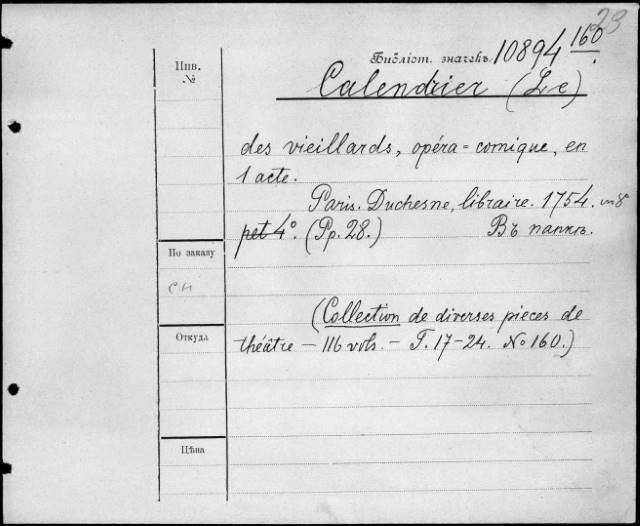 23
Инв.
№
Библіот. значекъ 10894 160.
Calendrier (Le)
des vieillards, opéra-comique, en
1 acte.
Paris. Duchesne, libraire. 1754. in 8°
pet 4°. (Pp. 28.) Въ папкѣ.
По заказу
сн
(Collection de diverses pieces de
théâtre — 116 vols. — T. 17-24. № 160.)
Откуда
Цѣна